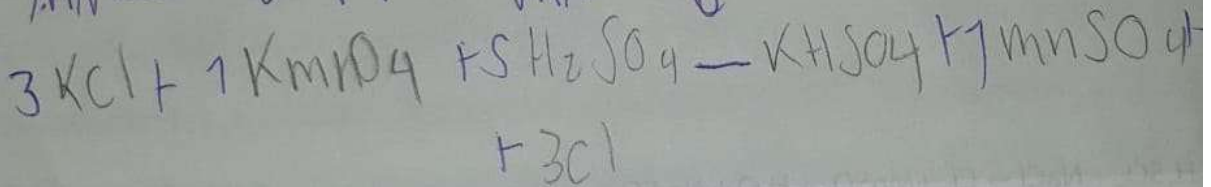 3KCl + 1KmnO4 + 5H2SO4 — KHSO4 + 1mnSO4+
+ 3Cl